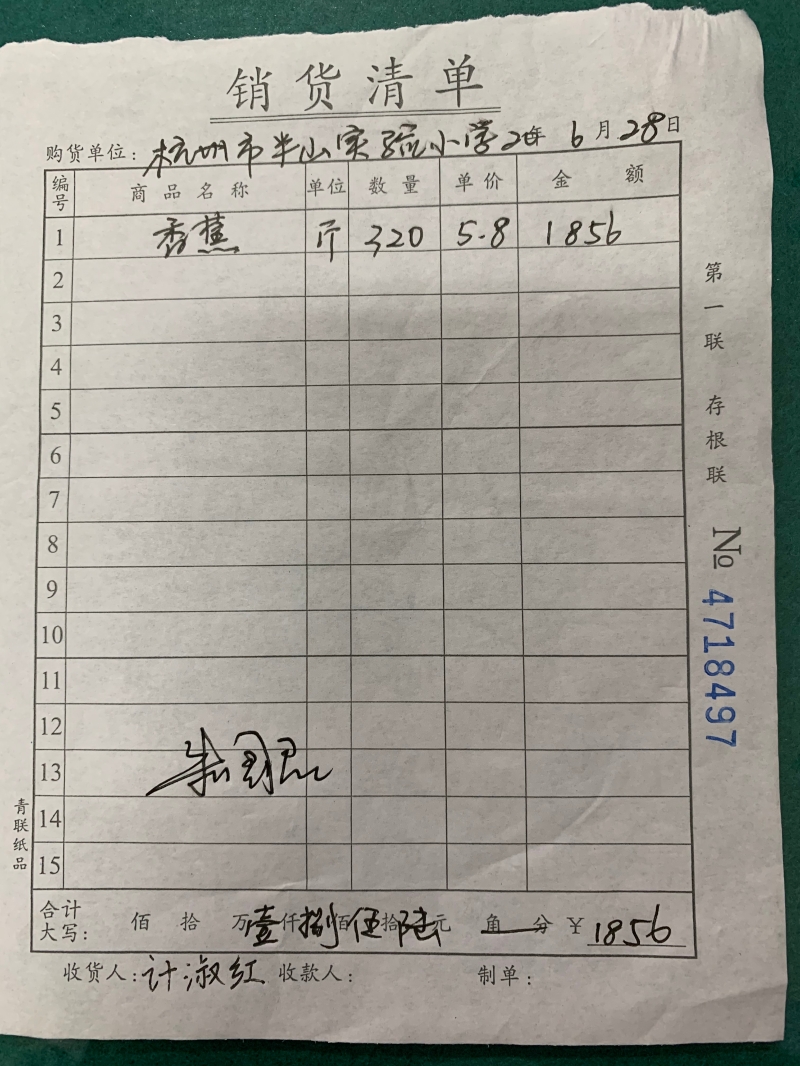 销货清单
购货单位：杭州市半山实验小学 年 6月28日
编号 商品名称 单位 数量 单价 金额
1 香蕉 斤 320 5.8 1856
2
3
4
5
6
7
8
9
10
11
12
13
14
15
合计大写： 佰 拾 万壹仟捌佰伍拾陆元 角 分 ￥1856
收货人：计淑红 收款人： 制单：
第一联 存根联
№ 4718497
青联纸品